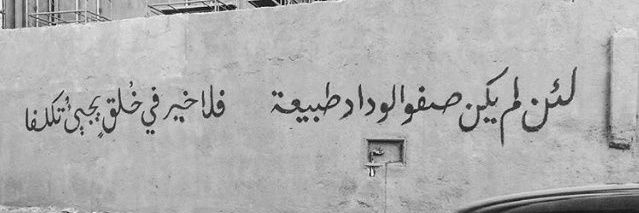 لئن لم يكن صفو الوداد طبيعة فلا خير في خُلقٍ يجيئُ تكلفا